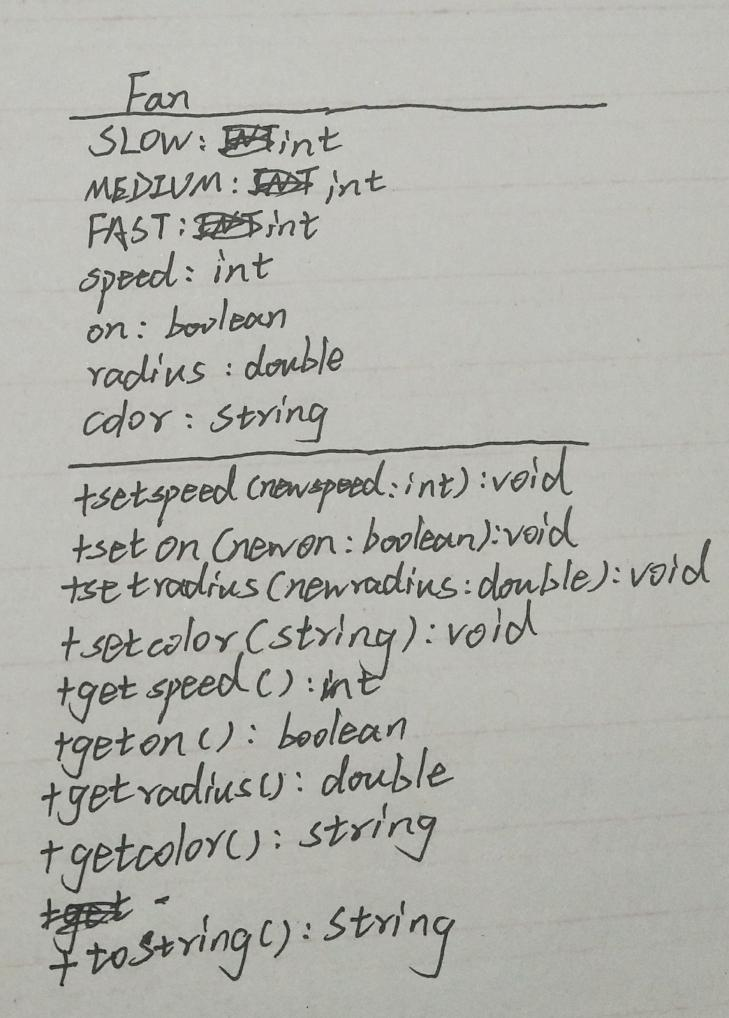 Fan
SLOW: int
MEDIUM: int
FAST: int
speed: int
on: boolean
radius: double
color: string
+setspeed(newspeed:int):void
+set on (newon: boolean):void
+setradius(newradius:double):void
+setcolor(string):void
+get speed():int
+geton(): boolean
+getradius(): double
+getcolor(): string
+toString(): string